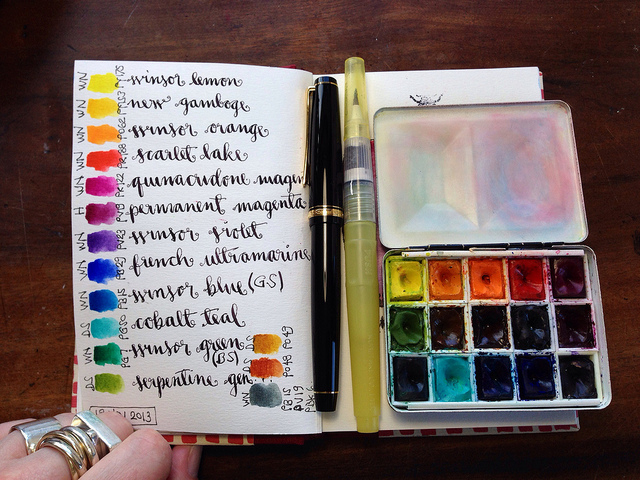 WN winsor lemon PY175
WN new gamboge PY153
WN winsor orange PO62
WN scarlet lake PR188
WN quinacridone magen PR122
H permanent magenta PV19
WN winsor violet PV23
WN french ultramarine PB29
WN winsor blue (GS) PB15
DS cobalt teal PG50
WN winsor green (BS) PG7
DS serpentine gen.
DS PO49
DS PO48
WN PB15 PV19
2013